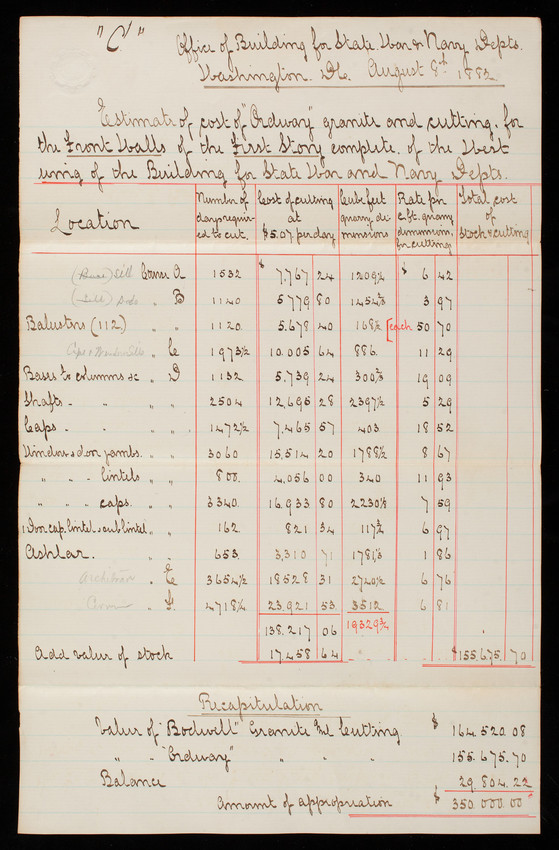 "C"
Office of Building for State, War & Navy Depts.
Washington. D.C. August 8th 1882
Estimate of cost of "Ordway" granite and cutting, for
the Front Walls of the First Story complete, of the West
wing of the Building for State War and Navy Depts.
Location | Number of days required to cut. | Cost of cutting at $5.07 per day | Cube feet quarry dimensions | Rate per c.ft. quarry dimensions, for cutting | Total cost of stock & cutting
(Base) Sill Corner A 1532 $ 7.767 24 1209½ $ 6 42
(Sill) Dado " B 1140 5779 80 1454⅔ 3 97
Balusters (112) " " 1120 5.678 40 168½ [each 50 70
Caps & Window Sills " C 1973½ 10.005 64 886. 11 29
Bases to columns &c " D 1132 5.739 24 300⅔ 19 09
Shafts - " " " 2504 12,695 28 2397½ 5 29
Caps - - " " " 1472½ 7.465 57 403 18 52
Window & door jambs. " " 3060 15,514 20 1788½ 8 67
" " " lintels " " 800. 4.056 00 340 11 93
" " " caps. " " 3340. 16.933 80 2230⅙ 7 59
1 Door cap, lintel & sub lintel " " 162. 821 34 117¾ 6 97
Ashlar. " " 653. 3,310 71 1781⅙ 1 86
Architrave " E 3654½ 18528 31 2740½ 6 76
" F 4718¼ 23,921 53 3512 6 81
138.217 06 19329¾
Add value of stock 17458 64 $155,675. 70
Recapitulation
Value of "Bodwell" Granite and Cutting $ 164.520.08
" " "Ordway" " " " 155.675.70
Balance 29.804.22
Amount of appropriation $ 350 000.00"